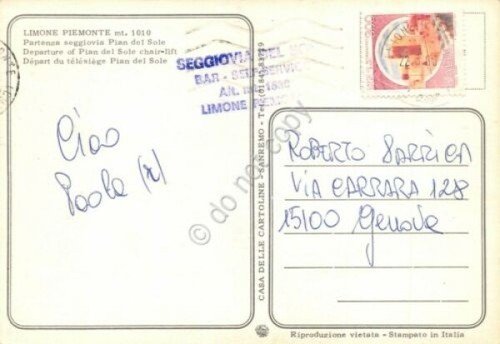 LIMONE PIEMONTE mt. 1010
Partenza seggiovia Pian del Sole
Departure of Pian del Sole chair-lift
Départ du télésiège Pian del Sole
SEGGIOVIA DEL
BAR - SELF SERVIC
Alt.
LIMONE PIEM
Ciao
Paola (x)
CASA DELLE CARTOLINE - SANREMO - Tel.
ROBERTO
VIA CARRARA 128
15100 Genova
Riproduzione vietata - Stampato in Italia
do not copy